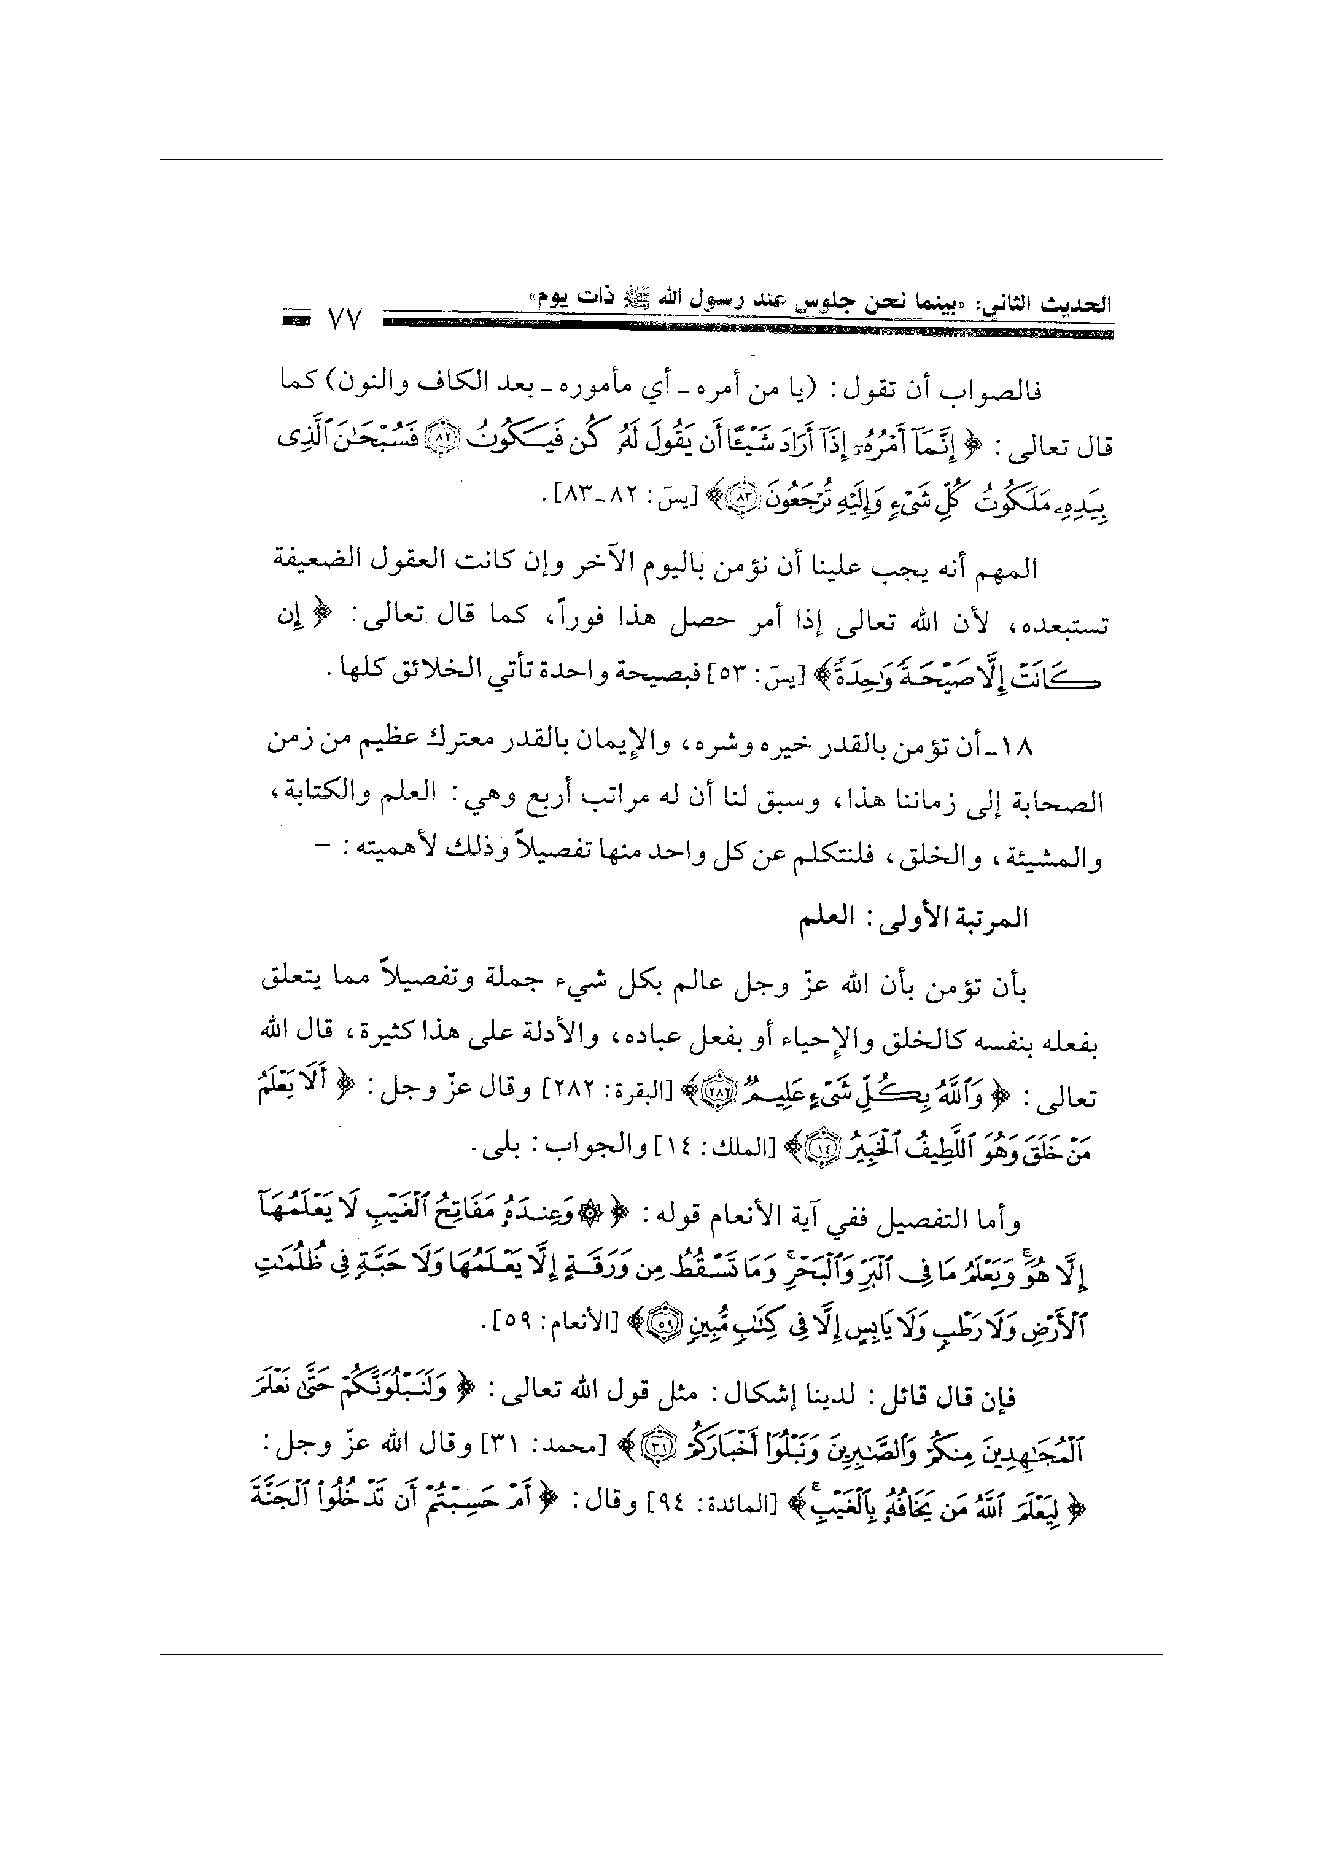 الحديث الثاني: «بينما نحن جلوس عند رسول الله ﷺ ذات يوم»
٧٧
فالصواب أن تقول: (يا من أمره ـ أي مأموره ـ بعد الكاف والنون) كما
قال تعالى: ﴿إِنَّمَآ أَمْرُهُۥٓ إِذَآ أَرَادَ شَيْـًٔا أَن يَقُولَ لَهُۥ كُن فَيَكُونُ ﴿٨٢﴾ فَسُبْحَٰنَ ٱلَّذِى
بِيَدِهِۦ مَلَكُوتُ كُلِّ شَىْءٍ وَإِلَيْهِ تُرْجَعُونَ ﴿٨٣﴾﴾ [يسَ: ٨٢ـ٨٣].
المهم أنه يجب علينا أن نؤمن باليوم الآخر وإن كانت العقول الضعيفة
تستبعده، لأن الله تعالى إذا أمر حصل هذا فوراً، كما قال تعالى: ﴿إِن
كَانَتْ إِلَّا صَيْحَةً وَٰحِدَةً﴾ [يسَ: ٥٣] فبصيحة واحدة تأتي الخلائق كلها.
١٨ـ أن تؤمن بالقدر خيره وشره، والإيمان بالقدر معترك عظيم من زمن
الصحابة إلى زماننا هذا، وسبق لنا أن له مراتب أربع وهي: العلم والكتابة،
والمشيئة، والخلق، فلنتكلم عن كل واحد منها تفصيلاً وذلك لأهميته: -
المرتبة الأولى: العلم
بأن تؤمن بأن الله عزّ وجل عالم بكل شيء جملة وتفصيلاً مما يتعلق
بفعله بنفسه كالخلق والإحياء أو بفعل عباده، والأدلة على هذا كثيرة، قال الله
تعالى: ﴿وَٱللَّهُ بِكُلِّ شَىْءٍ عَلِيمٌ ﴿٢٨٢﴾﴾ [البقرة: ٢٨٢] وقال عزّ وجل: ﴿أَلَا يَعْلَمُ
مَنْ خَلَقَ وَهُوَ ٱللَّطِيفُ ٱلْخَبِيرُ ﴿١٤﴾﴾ [الملك: ١٤] والجواب: بلى.
وأما التفصيل ففي آية الأنعام قوله: ﴿۞ وَعِندَهُۥ مَفَاتِحُ ٱلْغَيْبِ لَا يَعْلَمُهَآ
إِلَّا هُوَ ۚ وَيَعْلَمُ مَا فِى ٱلْبَرِّ وَٱلْبَحْرِ ۚ وَمَا تَسْقُطُ مِن وَرَقَةٍ إِلَّا يَعْلَمُهَا وَلَا حَبَّةٍ فِى ظُلُمَٰتِ
ٱلْأَرْضِ وَلَا رَطْبٍ وَلَا يَابِسٍ إِلَّا فِى كِتَٰبٍ مُّبِينٍ ﴿٥٩﴾﴾ [الأنعام: ٥٩].
فإن قال قائل: لدينا إشكال: مثل قول الله تعالى: ﴿وَلَنَبْلُوَنَّكُمْ حَتَّىٰ نَعْلَمَ
ٱلْمُجَٰهِدِينَ مِنكُمْ وَٱلصَّٰبِرِينَ وَنَبْلُوَا۟ أَخْبَارَكُمْ ﴿٣١﴾﴾ [محمد: ٣١] وقال الله عزّ وجل:
﴿لِيَعْلَمَ ٱللَّهُ مَن يَخَافُهُۥ بِٱلْغَيْبِ ۚ﴾ [المائدة: ٩٤] وقال: ﴿أَمْ حَسِبْتُمْ أَن تَدْخُلُوا۟ ٱلْجَنَّةَ